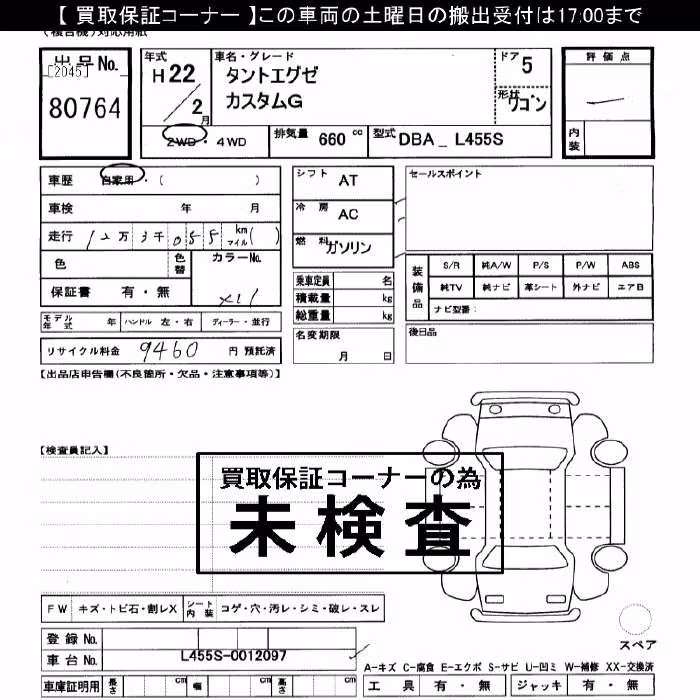 【 買取保証コーナー 】この車両の土曜日の搬出受付は17:00まで
(複合機)対応用紙
出品No. 年式 車名・グレード ドア 評価点
[2045] H22 タントエグゼ 5
80764 2月 カスタムG 形状 ワゴン
2WD・4WD 排気量 660 cc 型式 DBA_L455S 内装
車歴 自家用・( ) シフト AT セールスポイント
車検 年 月 冷房 AC
走行 12万3千055 km マイル( ) 燃料 ガソリン
色 色替 カラーNo. 装備品 S/R 純A/W P/S P/W ABS
保証書 有・無 X11 乗車定員 名 純TV 純ナビ 革シート 外ナビ エアB
積載量 kg ナビ型番:
モデル年式 年 ハンドル 左・右 ディーラー・並行 総重量 kg
リサイクル料金 9460 円 預託済 名変期限 月 日 後日品
【出品店申告欄(不良箇所・欠品・注意事項等)】
【検査員記入】
買取保証コーナーの為
未検査
FW キズ・トビ石・割レX シート内装 コゲ・穴・汚レ・シミ・破レ・スレ
登録No.
スペア
車台No. L455S-0012097
A-キズ C-腐食 E-エクボ S-サビ U-凹ミ W-補修 XX-交換済
車庫証明用 長さ cm 幅 cm 高さ cm 工具 有・無 ジャッキ 有・無